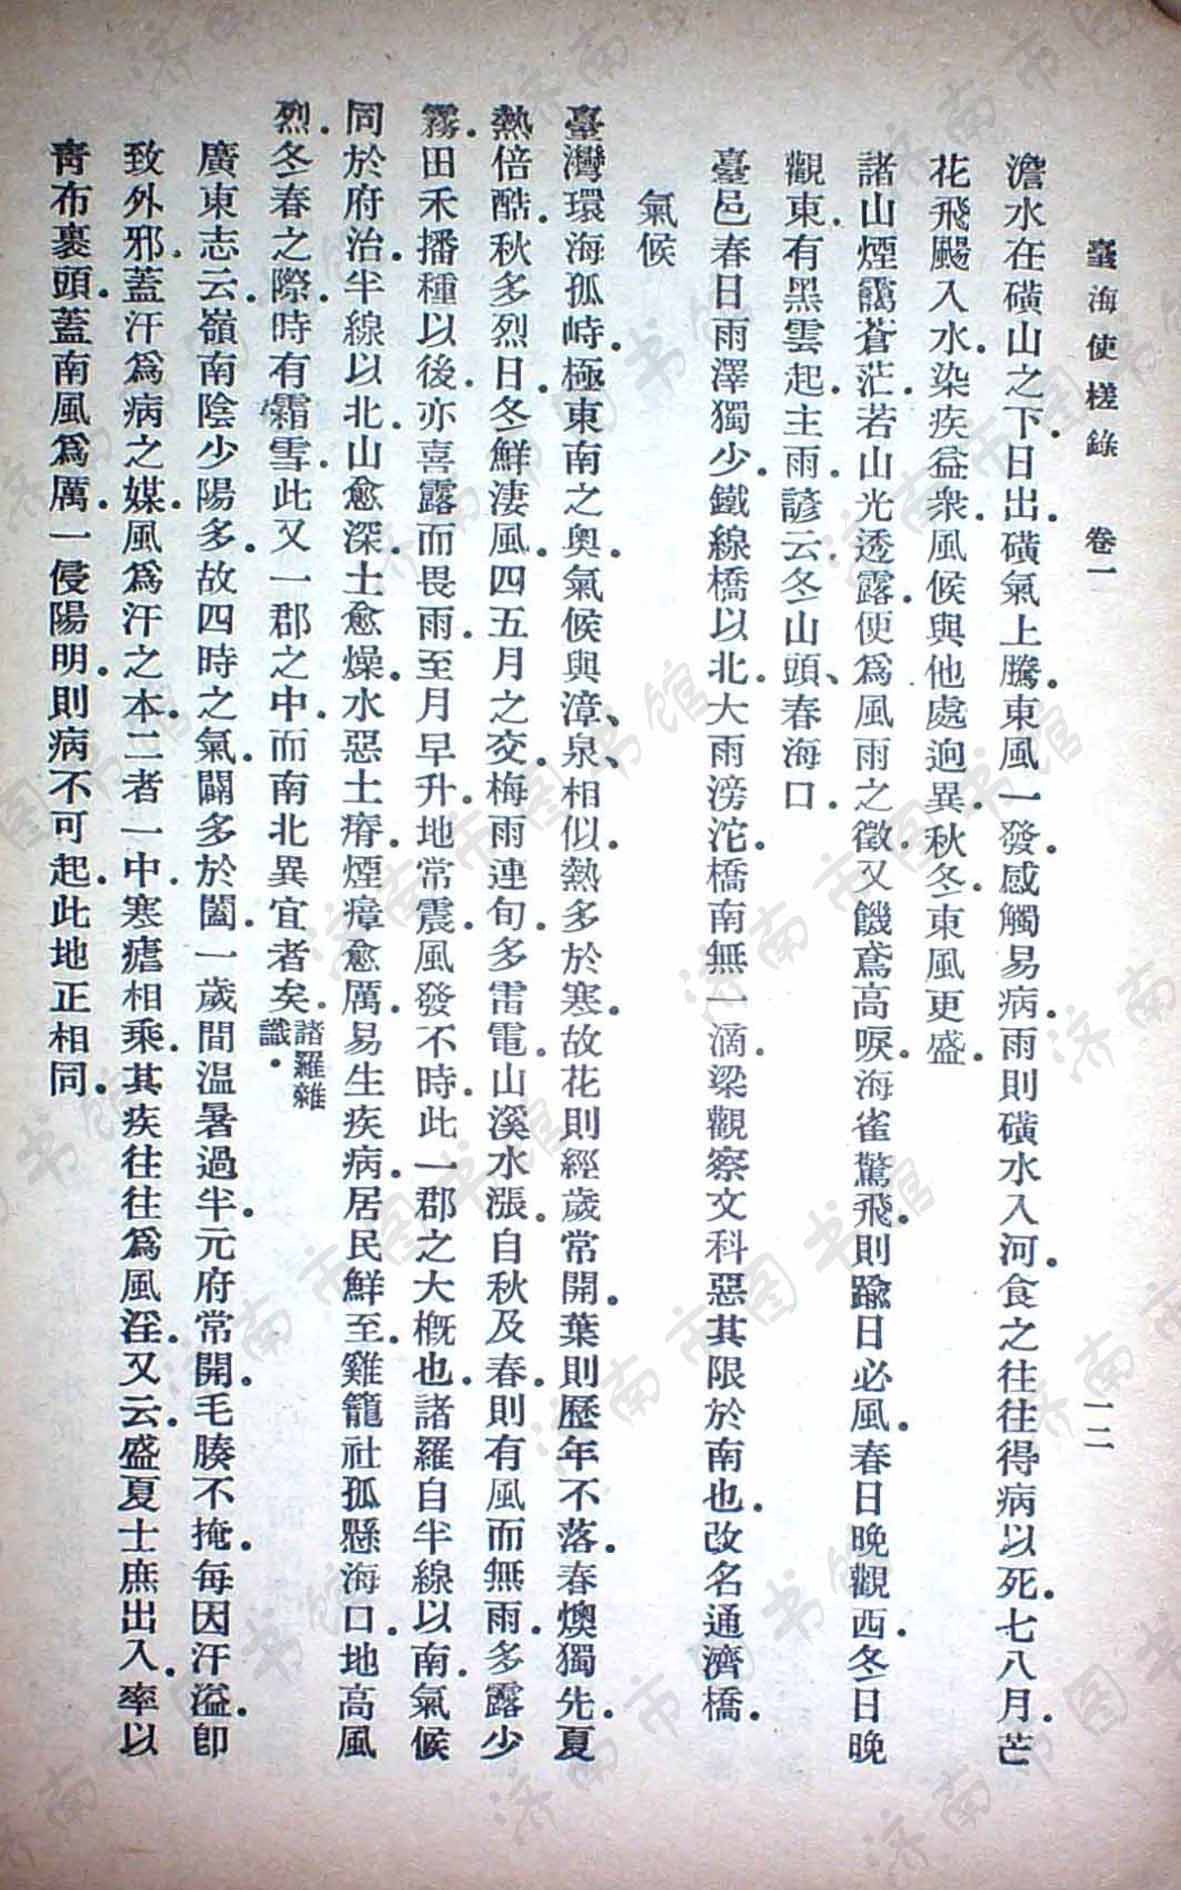 臺海使槎錄　卷一　一二
澹水在磺山之下．日出．磺氣上騰．東風一發．感觸易病．雨則磺水入河．食之往往得病以死．七八月．芒
花飛颺入水．染疾益衆．風候與他處逈異．秋冬．東風更盛．
諸山煙靄蒼茫．若山光透露．便爲風雨之徵．又饑鳶高唳．海雀驚飛．則踰日必風．春日晚觀西．冬日晚
觀東．有黑雲起．主雨．諺云．冬山頭、春海口．
臺邑春日雨澤獨少．鐵線橋以北．大雨滂沱．橋南無一滴．梁觀察文科惡其限於南也．改名通濟橋．
氣候
臺灣環海孤峙．極東南之奧．氣候與漳、泉、相似．熱多於寒．故花則經歲常開．葉則歷年不落．春燠獨先．夏
熱倍酷．秋多烈日．冬鮮淒風．四五月之交．梅雨連旬．多雷電．山溪水漲．自秋及春．則有風而無雨．多露少
霧．田禾播種以後．亦喜露而畏雨．至月早升．地常震．風發不時．此一郡之大槪也．諸羅自半線以南．氣候
同於府治．半線以北．山愈深．土愈燥．水惡土瘠．煙瘴愈厲．易生疾病．居民鮮至．雞籠社孤懸海口．地高風
烈．冬春之際．時有霜雪．此又一郡之中．而南北異宜者矣．諸羅雜識．
廣東志云．嶺南陰少陽多．故四時之氣．闢多於闔．一歲間溫暑過半．元府常開．毛腠不掩．每因汗溢．卽
致外邪．蓋汗爲病之媒．風爲汗之本．二者一中．寒瘧相乘．其疾往往爲風淫．又云．盛夏士庶出入．率以
靑布裹頭．蓋南風爲厲．一侵陽明．則病不可起．此地正相同．